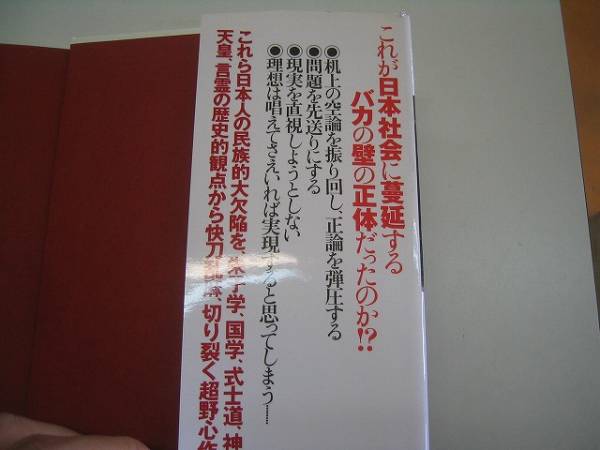 これが日本社会に蔓延する
バカの壁の正体だったのか!?
●机上の空論を振り回し、正論を弾圧する
●問題を先送りにする
●現実を直視しようとしない
●理想は唱えてさえいれば実現すると思ってしまう……
これら日本人の民族的大欠陥を、朱子学、国学、式士道、神
天皇、言霊の歴史的観点から快刀乱麻、切り裂く超野心作